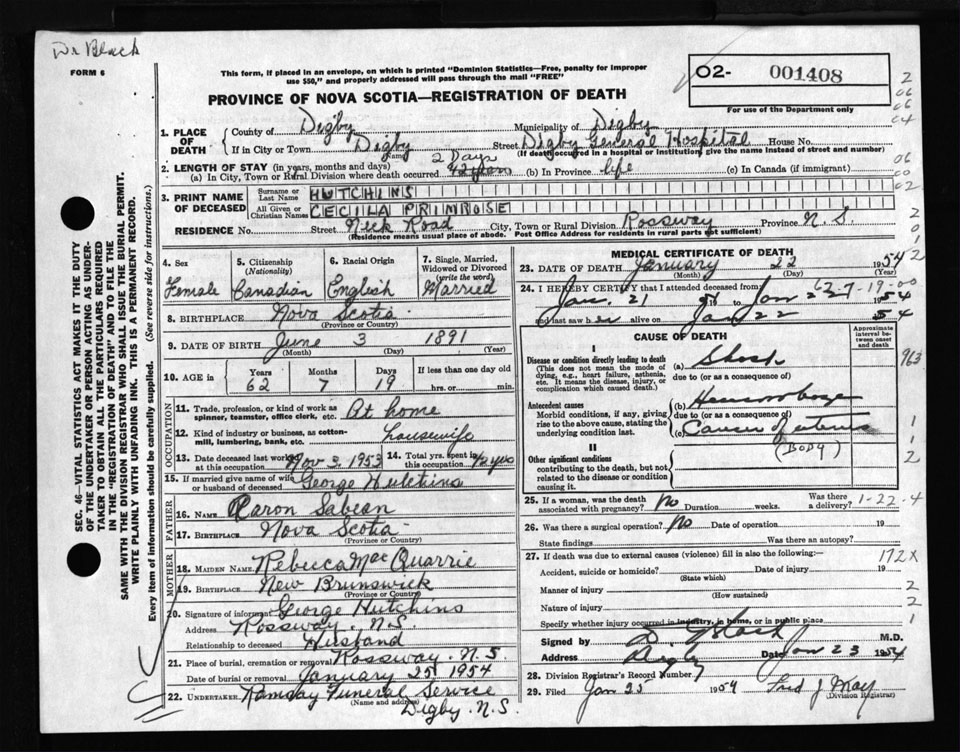 Dr Black
FORM 6
This form, if placed in an envelope, on which is printed "Dominion Statistics—Free, penalty for improper
use $50," and properly addressed will pass through the mail "FREE"
O2- 001408
For use of the Department only
PROVINCE OF NOVA SCOTIA—REGISTRATION OF DEATH
1. PLACE OF DEATH
County of Digby Municipality of Digby
If in City or Town Digby Street Digby General Hospital House No.
(Name) (If death occurred in a hospital or institution, give the name instead of street and number)
2. LENGTH OF STAY (in years, months and days) 2 Days
(a) In City, Town or Rural Division where death occurred 42 years (b) In Province life (c) In Canada (if immigrant)
3. PRINT NAME OF DECEASED
Surname or Last Name HUTCHINS
All Given or Christian Names CECILA PRIMROSE
RESIDENCE No. Street Neck Road City, Town or Rural Division Rossway Province N. S.
(Residence means usual place of abode. Post Office Address for residents in rural parts not sufficient)
4. Sex Female
5. Citizenship (Nationality) Canadian
6. Racial Origin English
7. Single, Married, Widowed or Divorced (write the word) Married
8. BIRTHPLACE Nova Scotia
(Province or Country)
9. DATE OF BIRTH June 3 1891
(Month) (Day) (Year)
10. AGE in Years 62 Months 7 Days 19 If less than one day old hrs. or min.
OCCUPATION
11. Trade, profession, or kind of work as spinner, teamster, office clerk, etc. At home
12. Kind of industry or business, as cotton-mill, lumbering, bank, etc. Housewife
13. Date deceased last worked at this occupation Nov 3. 1953
14. Total yrs. spent in this occupation 42 yrs
15. If married give name of wife or husband of deceased George Hutchins
FATHER
16. NAME Aaron Sabean
17. BIRTHPLACE Nova Scotia
(Province or Country)
MOTHER
18. MAIDEN NAME Rebecca MacQuarrie
19. BIRTHPLACE New Brunswick
(Province or Country)
20. Signature of informant George Hutchins
Address Rossway. N.S.
Relationship to deceased Husband
21. Place of burial, cremation or removal Rossway. N.S.
Date of burial or removal January 25 1954
22. UNDERTAKER Ramsay Funeral Service
(Name and address)
Digby. N.S.
MEDICAL CERTIFICATE OF DEATH
23. DATE OF DEATH January 22 1954
(Month) (Day) (Year)
24. I HEREBY CERTIFY that I attended deceased from
Jan. 21 to Jan 22 1954
62-7-19-00
and last saw her alive on Jan 22 54
CAUSE OF DEATH
Approximate interval between onset and death
I
Disease or condition directly leading to death
(This does not mean the mode of dying, e.g., heart failure, asthenia, etc. It means the disease, injury, or complication which caused death.)
(a) Shock
due to (or as a consequence of)
Antecedent causes
Morbid conditions, if any, giving rise to the above cause, stating the underlying condition last.
(b) Haemorrhage
due to (or as a consequence of)
(c) Cancer of uterus
(BODY)
II
Other significant conditions contributing to the death, but not related to the disease or condition causing it.
25. If a woman, was the death associated with pregnancy? No Duration weeks. Was there a delivery?
1-22-4
26. Was there a surgical operation? No Date of operation 19
State findings Was there an autopsy?
27. If death was due to external causes (violence) fill in also the following:—
172X
Accident, suicide or homicide? Date of injury 19
(State which)
Manner of injury
(How sustained)
Nature of injury
Specify whether injury occurred in industry, in home, or in public place
Signed by M.D.
Address Digby Date Jan 23 1954
28. Division Registrar's Record Number 7
29. Filed Jan 25 1954 Fred J May
(Division Registrar)
SEC. 46—VITAL STATISTICS ACT MAKES IT THE DUTY
OF THE UNDERTAKER OR PERSON ACTING AS UNDER-
TAKER TO OBTAIN ALL THE PARTICULARS REQUIRED
IN THE "REGISTRATION OF DEATH" AND TO FILE THE
SAME WITH THE DIVISION REGISTRAR WHO SHALL ISSUE THE BURIAL PERMIT.
WRITE PLAINLY WITH UNFADING INK. THIS IS A PERMANENT RECORD.
Every item of information should be carefully supplied. (See reverse side for instructions.)